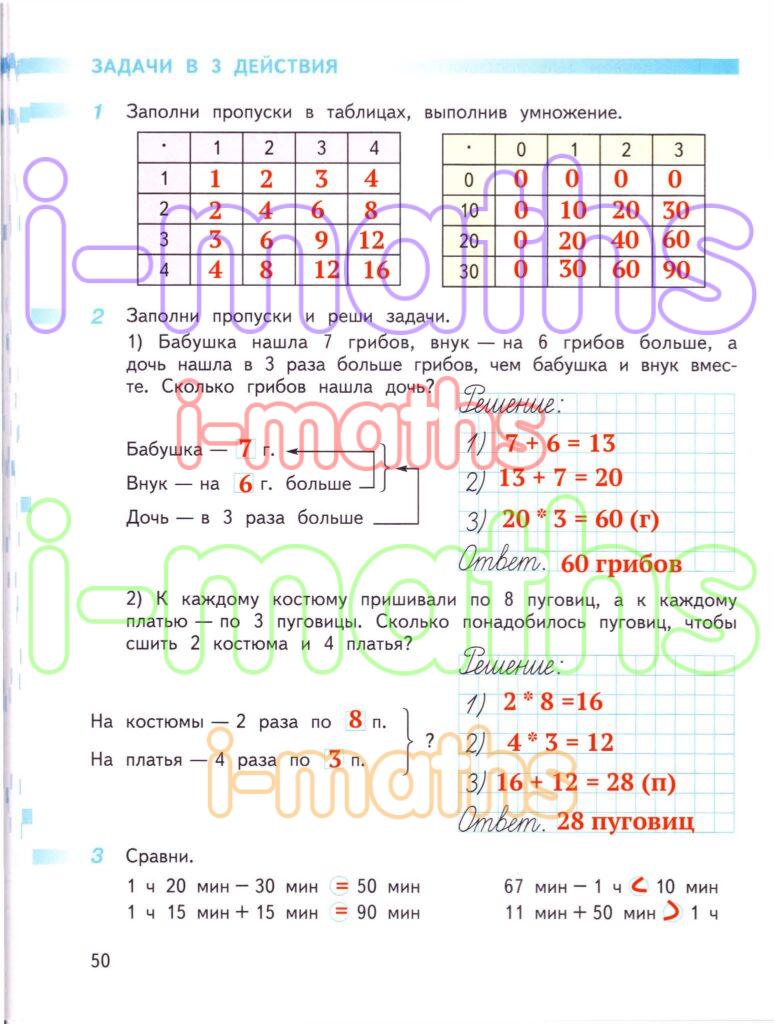 ЗАДАЧИ В 3 ДЕЙСТВИЯ
1 Заполни пропуски в таблицах, выполнив умножение.
· 1 2 3 4
1 1 2 3 4
2 2 4 6 8
3 3 6 9 12
4 4 8 12 16
· 0 1 2 3
0 0 0 0 0
10 0 10 20 30
20 0 20 40 60
30 0 30 60 90
i-maths
2 Заполни пропуски и реши задачи.
1) Бабушка нашла 7 грибов, внук — на 6 грибов больше, а
дочь нашла в 3 раза больше грибов, чем бабушка и внук вмес-
те. Сколько грибов нашла дочь?
i-maths
Бабушка — 7 г.
Внук — на 6 г. больше
Дочь — в 3 раза больше
Решение:
1) 7 + 6 = 13
2) 13 + 7 = 20
3) 20 * 3 = 60 (г)
Ответ. 60 грибов
i-maths
2) К каждому костюму пришивали по 8 пуговиц, а к каждому
платью — по 3 пуговицы. Сколько понадобилось пуговиц, чтобы
сшить 2 костюма и 4 платья?
На костюмы — 2 раза по 8 п.
На платья — 4 раза по 3 п.
?
i-maths
Решение:
1) 2 * 8 =16
2) 4 * 3 = 12
3) 16 + 12 = 28 (п)
Ответ. 28 пуговиц
3 Сравни.
1 ч 20 мин − 30 мин = 50 мин
1 ч 15 мин + 15 мин = 90 мин
67 мин − 1 ч < 10 мин
11 мин + 50 мин > 1 ч
50